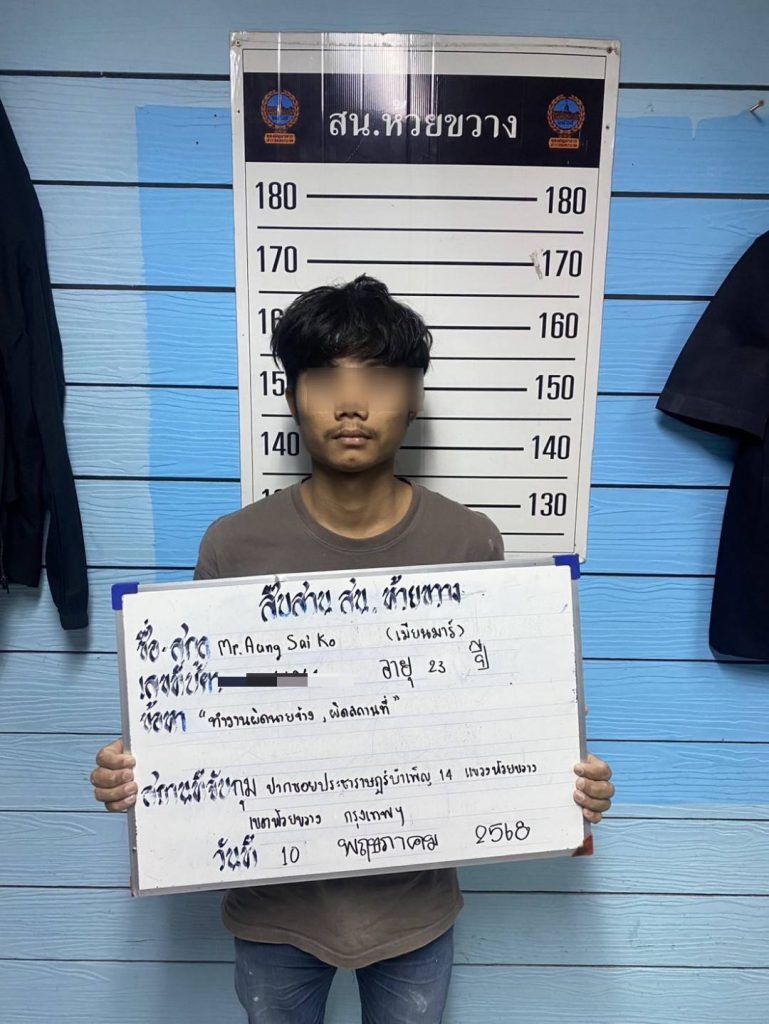 สน.ห้วยขวาง
180 180
170 170
16 160
15 150
140 140
130
สืบสวน สน. ห้วยขวาง
ชื่อ-สกุล Mr. Aung Sai Ko (เมียนมาร์)
อายุ 23 ปี
ข้อหา "ทำงานผิดนายจ้าง, ผิดสถานที่"
สถานที่จับกุม ปากซอยประชาราษฎร์บำเพ็ญ 14 แขวงห้วยขวาง
เขตห้วยขวาง กรุงเทพฯ
วันที่ 10 พฤษภาคม 2568